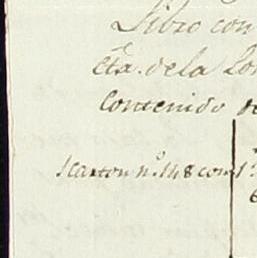 Libro con
cta. de la Co
Contenido
1 Carton nº. 148 con 1